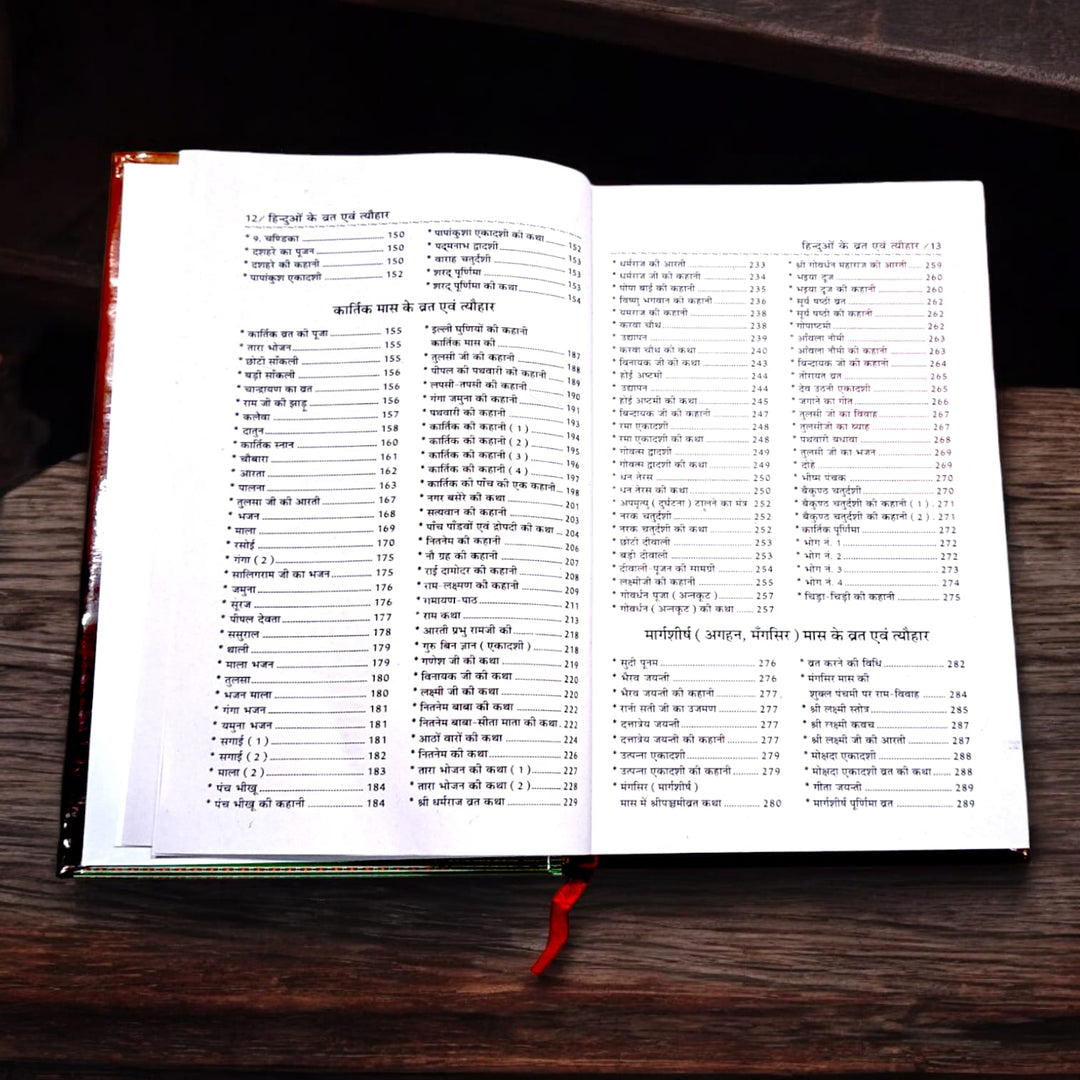 12/ हिन्दुओं के व्रत एवं त्यौहार
* 9. चण्डिका 150
* दशहरे का पूजन 150
* दशहरे की कहानी 150
* पापांकुश एकादशी 152
* पापांकुशा एकादशी की कथा 152
* पद्मनाभ द्वादशी 153
* वाराह चतुर्दशी 153
* शरद् पूर्णिमा 153
* शरद् पूर्णिमा की कथा 154
कार्तिक मास के व्रत एवं त्यौहार
* कार्तिक व्रत की पूजा 155
* तारा भोजन 155
* छोटी साँकली 155
* बड़ी साँकली 156
* चान्द्रायण का व्रत 156
* राम जी की झाड़ू 156
* कलेवा 157
* दातुन 158
* कार्तिक स्नान 160
* चौबारा 161
* आरता 162
* पालना 163
* तुलसा जी की आरती 167
* भजन 168
* माला 169
* रसोई 170
* गंगा ( 2 ) 175
* सालिगराम जी का भजन 175
* जमुना 176
* सूरज 176
* पीपल देवता 177
* ससुराल 178
* थाली 179
* माला भजन 179
* तुलसा 180
* भजन माला 180
* गंगा भजन 181
* यमुना भजन 181
* सगाई ( 1 ) 181
* सगाई ( 2 ) 182
* माला ( 2 ) 183
* पंच भीखू 184
* पंच भीखू की कहानी 184
* इल्ली घुणियों की कहानी
कार्तिक मास की 187
* तुलसी जी की कहानी 188
* पीपल की पथवारी की कहानी 189
* लपसी-तपसी की कहानी 190
* गंगा जमुना की कहानी 191
* पथवारी की कहानी 193
* कार्तिक की कहानी ( 1 ) 194
* कार्तिक की कहानी ( 2 ) 195
* कार्तिक की कहानी ( 3 ) 196
* कार्तिक की कहानी ( 4 ) 197
* कार्तिक की पाँच की एक कहानी 198
* नगर बसेरे की कथा 201
* सत्यवान की कहानी 203
* पांच पाँडवों एवं द्रोपदी की कथा 204
* नितनेम की कहानी 206
* नौ ग्रह की कहानी 207
* राई दामोदर की कहानी 208
* राम-लक्ष्मण की कहानी 209
* रामायण-पाठ 211
* राम कथा 213
* आरती प्रभु रामजी की 218
* गुरु बिन ज्ञान ( एकादशी ) 218
* गणेश जी की कथा 219
* विनायक जी की कथा 220
* लक्ष्मी जी की कथा 220
* नितनेम बाबा की कथा 222
* नितनेम बाबा-सीता माता की कथा 222
* आठों वारों की कथा 224
* नितनेम की कथा 226
* तारा भोजन की कथा ( 1 ) 227
* तारा भोजन की कथा ( 2 ) 228
* श्री धर्मराज व्रत कथा 229
हिन्दुओं के व्रत एवं त्यौहार /13
* धर्मराज की आरती 233
* धर्मराज जी की कहानी 234
* पोपा बाई की कहानी 235
* विष्णु भगवान की कहानी 236
* यमराज की कहानी 238
* करवा चौथ 238
* उद्यापन 239
* करवा चौथ की कथा 240
* विनायक जी की कथा 243
* होई अष्टमी 244
* उद्यापन 244
* होई अष्टमी की कथा 245
* बिन्दायक जी की कहानी 247
* रमा एकादशी 248
* रमा एकादशी की कथा 248
* गोवत्स द्वादशी 249
* गोवत्स द्वादशी की कथा 249
* धन तेरस 250
* धन तेरस की कथा 250
* अपमृत्यु ( दुर्घटना ) टालने का मंत्र 252
* नरक चतुर्दशी 252
* नरक चतुर्दशी की कथा 252
* छोटी दीवाली 253
* बड़ी दीवाली 253
* दीवाली-पूजन की सामग्री 254
* लक्ष्मीजी की कहानी 255
* गोवर्धन पूजा ( अन्नकूट ) 257
* गोवर्धन ( अन्नकूट ) की कथा 257
* श्री गोवर्धन महाराज की आरती 259
* भइया दूज 260
* भइया दूज की कहानी 260
* सूर्य षष्ठी व्रत 262
* सूर्य षष्ठी की कहानी 262
* गोपाष्टमी 262
* आँवला नौमी 263
* आँवला नौमी की कहानी 263
* बिन्दायक जी की कहानी 264
* तीरायत व्रत 265
* देव उठनी एकादशी 265
* जगाने का गीत 266
* तुलसी जी का विवाह 267
* तुलसीजी का ब्याह 267
* पथवारी बधावा 268
* तुलसी जी का भजन 269
* दोहे 269
* भीष्म पंचक 270
* बैकुण्ठ चतुर्दशी 270
* बैकुण्ठ चतुर्दशी की कहानी ( 1 ) 271
* बैकुण्ठ चतुर्दशी की कहानी ( 2 ) 271
* कार्तिक पूर्णिमा 272
* भोग नं. 1 272
* भोग नं. 2 272
* भोग नं. 3 273
* भोग नं. 4 274
* चिड़ा-चिड़ी की कहानी 275
मार्गशीर्ष ( अगहन, मँगसिर ) मास के व्रत एवं त्यौहार
* सुदी पूनम 276
* भैरव जयन्ती 276
* भैरव जयन्ती की कहानी 277
* रानी सती जी का उजमण 277
* दत्तात्रेय जयन्ती 277
* दत्तात्रेय जयन्ती की कहानी 277
* उत्पन्ना एकादशी 279
* उत्पन्ना एकादशी की कहानी 279
* मंगसिर ( मार्गशीर्ष )
मास में श्रीपञ्चमीव्रत कथा 280
* व्रत करने की विधि 282
* मंगसिर मास की
शुक्ल पंचमी पर राम-विवाह 284
* श्री लक्ष्मी स्तोत्र 285
* श्री लक्ष्मी कवच 287
* श्री लक्ष्मी जी की आरती 287
* मोक्षदा एकादशी 288
* मोक्षदा एकादशी व्रत की कथा 288
* गीता जयन्ती 289
* मार्गशीर्ष पूर्णिमा व्रत 289